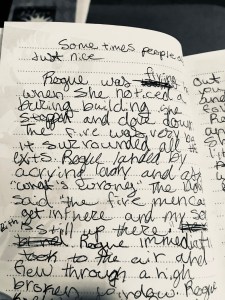 Some times people a
Just nice
Rogue was flying
when she noticed a
buring building she
stopped and dove dow
The fire was very b
it surrounded all
exts. Rogue landed by
a crying lady and as
"what's wrong" The lady
said "the fire men ca
get in there and my so
is still up there."
Rogue immediatl
took to the air and
flew through a high
broken window. Rogue
out
you